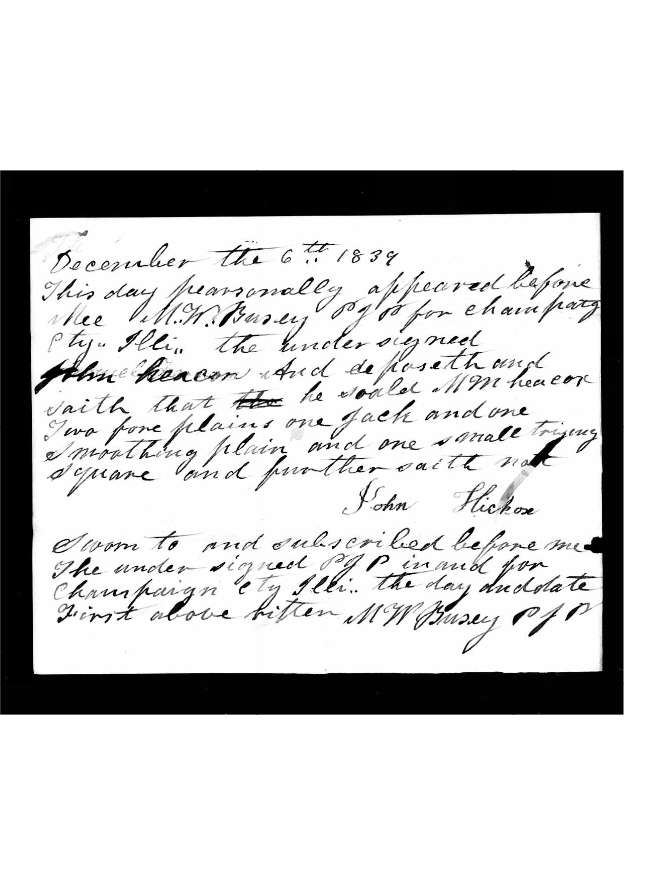 December the 6th 1839
This day pearsonally appeared before
Mee M.W. Busey P J P for champaig
Cty.. Illi.. the under signed
John heacox And deposeth and
saith that the he soald M M heacox
Two fore plains one Jack and one
Smoothing plain and one small trijng
square and further saith not
John Hickox
Sworn to and subscribed before me
The under signed P J P in and for
Champaign Cty Illi.. the day and date
First above ritten M W Busey P J P